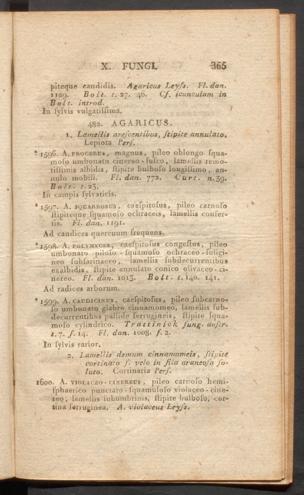 X. FUNGI. 365
piteque candidis. Agaricus Leyss. Fl. dan.
1129. Bolt. t. 27. 46. Cf. icunculam in
Bolt. introd.
In sylvis vulgatissima.
482. AGARICUS.
1. Lamellis arescentibus, stipite annulato.
Lepiota Pers.
1596. A. PROCERUS, magnus, pileo oblongo squa-
moso umbonato cinereo-fusco, lamellis remo-
tissimis albidis, stipite bulboso longissimo, an-
nulo mobili. Fl. dan. 772. Curt. n. 39.
Bolt. t. 23.
In campis sylvaticis.
* 1597. A. SQUARROSUS, caespitosus, pileo carnoso
stipiteque squamoso ochraceis, lamellis confer-
tis. Fl. dan. 1191.
Ad caudices quercuum frequens.
* 1598. A. POLYMYCES, caespitosus congestus, pileo
umbonato piloso-squamoso ochraceo-fuligi-
neo subfarinaceo, lamellis subdecurrentibus
exalbidis, stipite annulato conico olivaceo-ci-
nereo. Fl. dan. 1013. Bolt. t. 140. 141.
Ad radices arborum.
* 1599. A. CAUDICINUS, caespitosus, pileo subcarno-
so umbonato glabro cinnamomeo, lamellis sub-
decurrentibus pallide ferrugineis, stipite squa-
moso cylindrico. Trattinick fung. austr.
t. 7. f. 14. Fl. dan. 1008. f. 2.
In sylvis rarior.
2. Lamellis demum cinnamomeis, stipite
cortinato s. velo in fila araneosa so-
luto. Cortinaria Pers.
1600. A. VIOLACEO-CINEREUS, pileo carnoso hemi-
sphaerico punctato-squamuloso violaceo-cine-
reo, lamellis subumbrinis, stipite bulboso, cor-
tina ferruginea. A. violaceus Leyss.